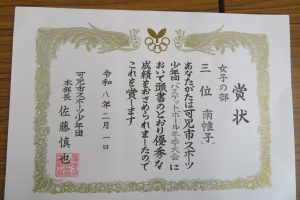 賞状
女子の部
三位 南帷子
あなたがたは可児市スポーツ
少年団「バスケットボール冬季大会」に
おいて頭書のとおり優秀な
成績をおさめられましたので
これを賞します
令和八年二月一日
可児市スポーツ少年団
本部長 佐藤慎也